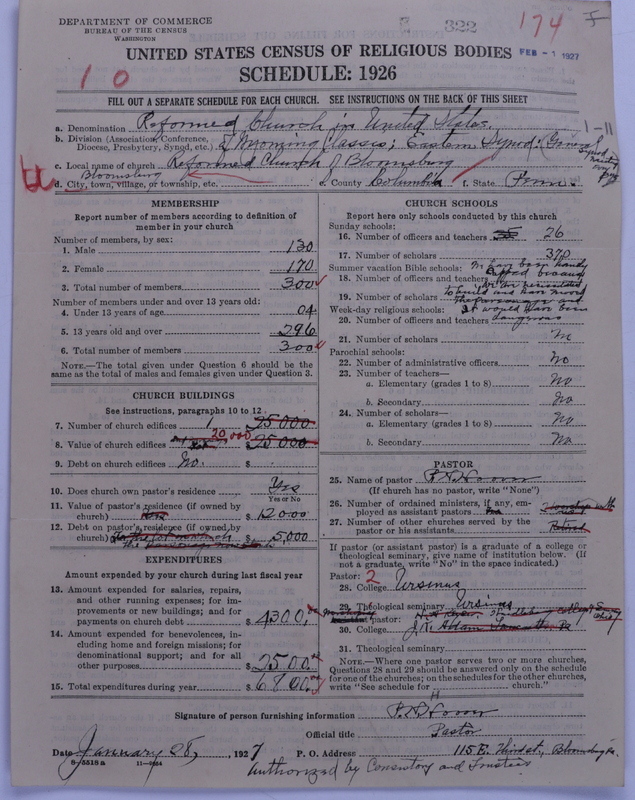 DEPARTMENT OF COMMERCE
BUREAU OF THE CENSUS
WASHINGTON
322
174
FEB - 1 1927
UNITED STATES CENSUS OF RELIGIOUS BODIES
SCHEDULE: 1926
10
FILL OUT A SEPARATE SCHEDULE FOR EACH CHURCH. SEE INSTRUCTIONS ON THE BACK OF THIS SHEET
a. Denomination Reformed Church in United States.
1-11
b. Division (Association, Conference, Diocese, Presbytery, Synod, etc.) Wyoming Classis; Eastern Synod;
c. Local name of church Reformed Church of Bloomsburg
Bloomsburg
d. City, town, village, or township, etc. e. County Columbia f. State Penn.
MEMBERSHIP
Report number of members according to definition of member in your church
Number of members, by sex:
1. Male 130
2. Female 170
3. Total number of members 300
Number of members under and over 13 years old:
4. Under 13 years of age 04
5. 13 years old and over 296
6. Total number of members 300
NOTE.—The total given under Question 6 should be the same as the total of males and females given under Question 3.
CHURCH BUILDINGS
See instructions, paragraphs 10 to 12
7. Number of church edifices 1 25000
20,000
8. Value of church edifices $ 25000
9. Debt on church edifices No. $
10. Does church own pastor's residence Yes
Yes or No
11. Value of pastor's residence (if owned by church) $ 12000
12. Debt on pastor's residence (if owned by church) $ 5,000
EXPENDITURES
Amount expended by your church during last fiscal year
13. Amount expended for salaries, repairs, and other running expenses; for improvements or new buildings; and for payments on church debt $ 4300.
14. Amount expended for benevolences, including home and foreign missions; for denominational support; and for all other purposes $ 2500
15. Total expenditures during year $ 6800
CHURCH SCHOOLS
Report here only schools conducted by this church
Sunday schools:
16. Number of officers and teachers 26
17. Number of scholars 378
Summer vacation Bible schools:
18. Number of officers and teachers
19. Number of scholars
Week-day religious schools:
20. Number of officers and teachers
21. Number of scholars No
Parochial schools:
22. Number of administrative officers No
23. Number of teachers—
a. Elementary (grades 1 to 8) No
b. Secondary No
24. Number of scholars—
a. Elementary (grades 1 to 8) No
b. Secondary No
PASTOR
25. Name of pastor
(If church has no pastor, write "None")
26. Number of ordained ministers, if any, employed as assistant pastors
27. Number of other churches served by the pastor or his assistants
If pastor (or assistant pastor) is a graduate of a college or theological seminary, give name of institution below. (If not a graduate, write "No" in the space indicated.)
Pastor: 2
28. College Ursinus
29. Theological seminary Ursinus
Assistant pastor:
30. College
31. Theological seminary
NOTE.—Where one pastor serves two or more churches, Questions 28 and 29 should be answered only on the schedule for one of the churches; on the schedules for the other churches, write "See schedule for church."
Signature of person furnishing information
Official title Pastor
Date January 28, 1927 P. O. Address 115 E. Third st., Bloomsburg Pa.
8-5518 a 11-9464
Authorized by Consistory and Trustees